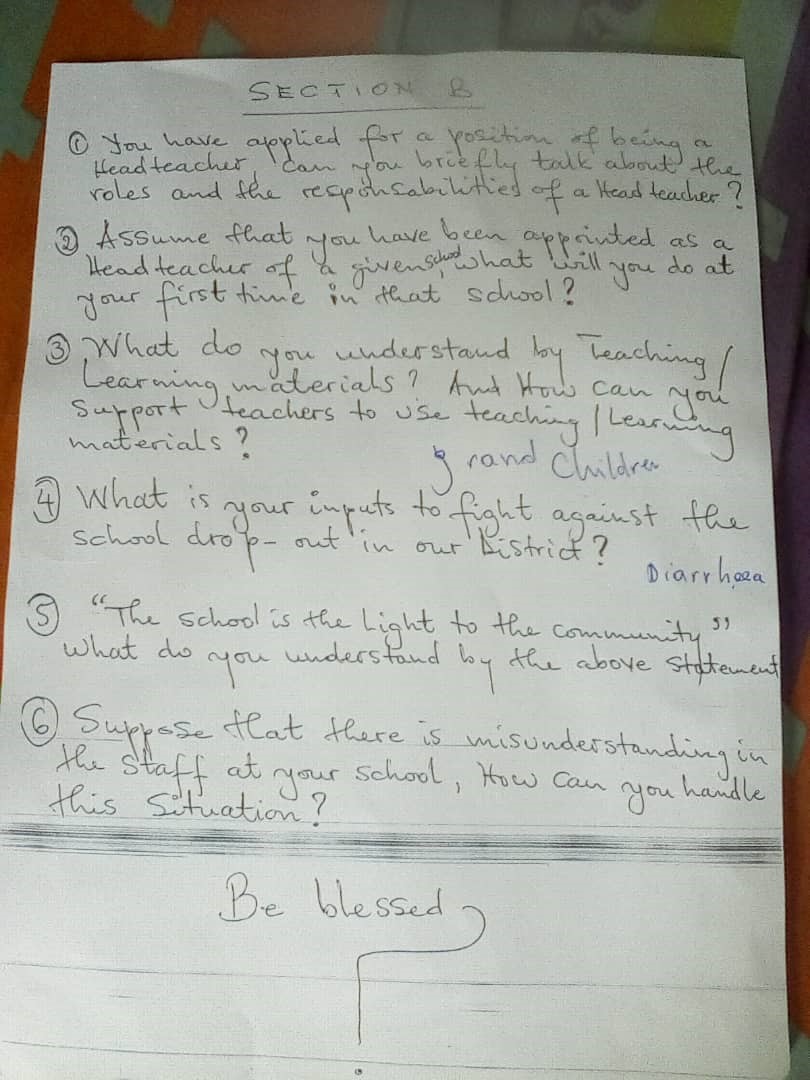 SECTION B
① You have applied for a position of being a
Headteacher, Can you briefly talk about the
roles and the responsabilitied of a Head teacher?
② Assume that you have been appointed as a
Head teacher of a given school what will you do at
your first time in that school?
③ What do you understand by Teaching/
Learning materials? And How can you
Support teachers to use teaching/Learning
materials?
grand Children
④ What is your inputs to fight against the
school drop-out in our District?
Diarrhoea
⑤ "The school is the Light to the community"
What do you understand by the above statement
⑥ Suppose that there is misunderstanding in
the staff at your school, How can you handle
this Situation?
Be blessed